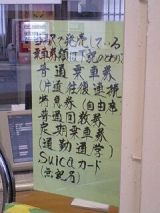 当駅で発売している
乗車券類は下記のとおり
普通乗車券
(片道往復連続)
特急券(自由席)
普通回数券
定期乗車券
(通勤通学)
Suicaカード
(無記名)